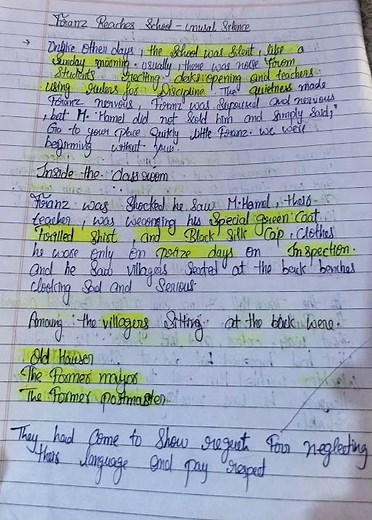 Franz Reaches School - unusal Silence
→ Unlike other days, the School was Silent, like a
Sunday morning. usually, there was noise from
Students reciting, desks opening and teachers
using rulers for Discipline. The quietness made
Franz nervous, Franz was Suprised and nervous
, but M. Hamel did not Scold him and Simply Said,"
Go to your place Quickly little Franz. we were
beginning without you.
Inside the classroom
Franz was Shocked he saw M.Hamel, their
teacher, was wearing his Special green Coat
Frilled Shirt, and Black Silk Cap. Clothes
he wore only on prize days on Inspection.
and he Saw villagers Seated at the back benches
looking Sad and Serious.
Among the villagers Sitting at the back were.
Old Hauser
The Former mayor
The Former postmaster.
They had Come to Show regret For neglecting
their language and pay respect